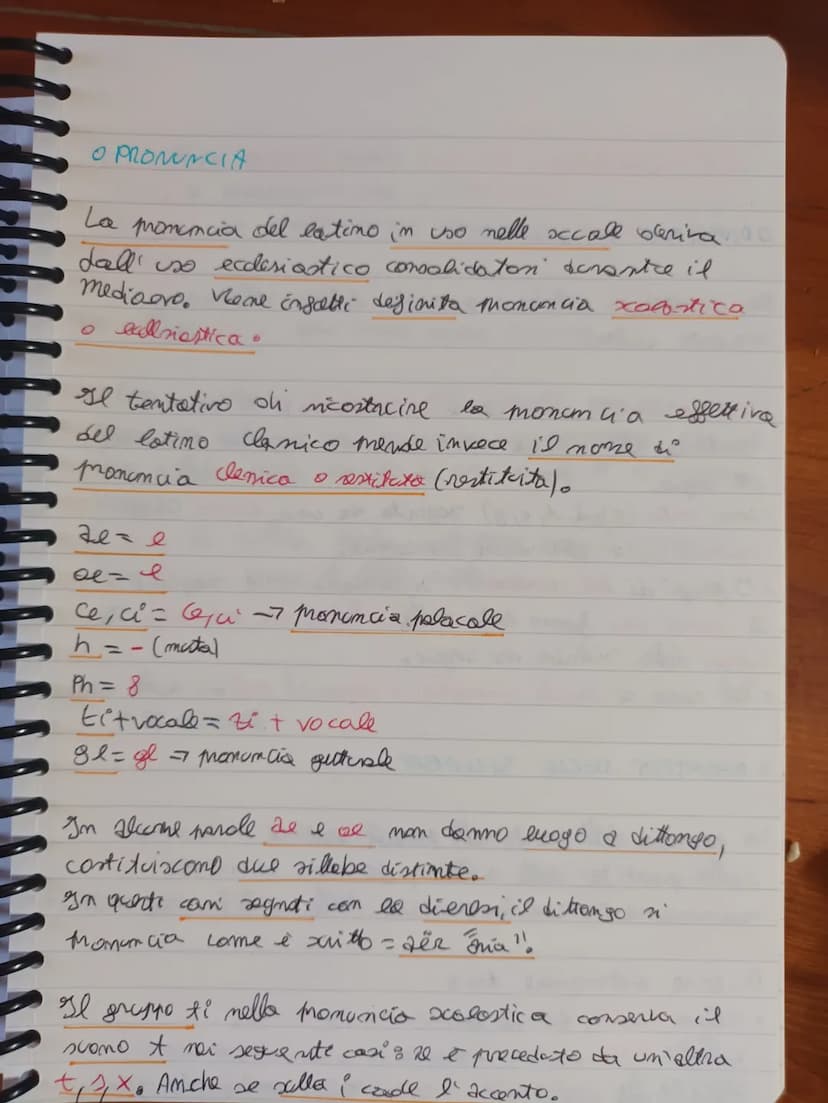 O PRONUNCIA
La pronuncia del latino in uso nelle scuole deriva
dall' uso ecclesiastico consolidatosi durante il
medioevo. Viene infatti definita pronuncia scolastica
o ecclesiastica.
Il tentativo di ricostruire la pronuncia effettiva
del latino classico prende invece il nome di
pronuncia classica o restituta (restituita).
ae = e
oe = e
ce, ci = ce, ci → pronuncia palatale
h = - (muta)
Ph = f
ti + vocale = zi + vocale
gl = gl → pronuncia gutturale
In alcune parole ae e oe non danno luogo a dittongo,
costituiscono due sillabe distinte.
In questi casi segnati con la dieresi, il dittongo si
pronuncia come è scritto =
Il gruppo ti nella pronuncia scolastica conserva il
suono t nei seguente casi: se è preceduto da un'altra
t, s, x. Anche se sulla i cade l'accento.